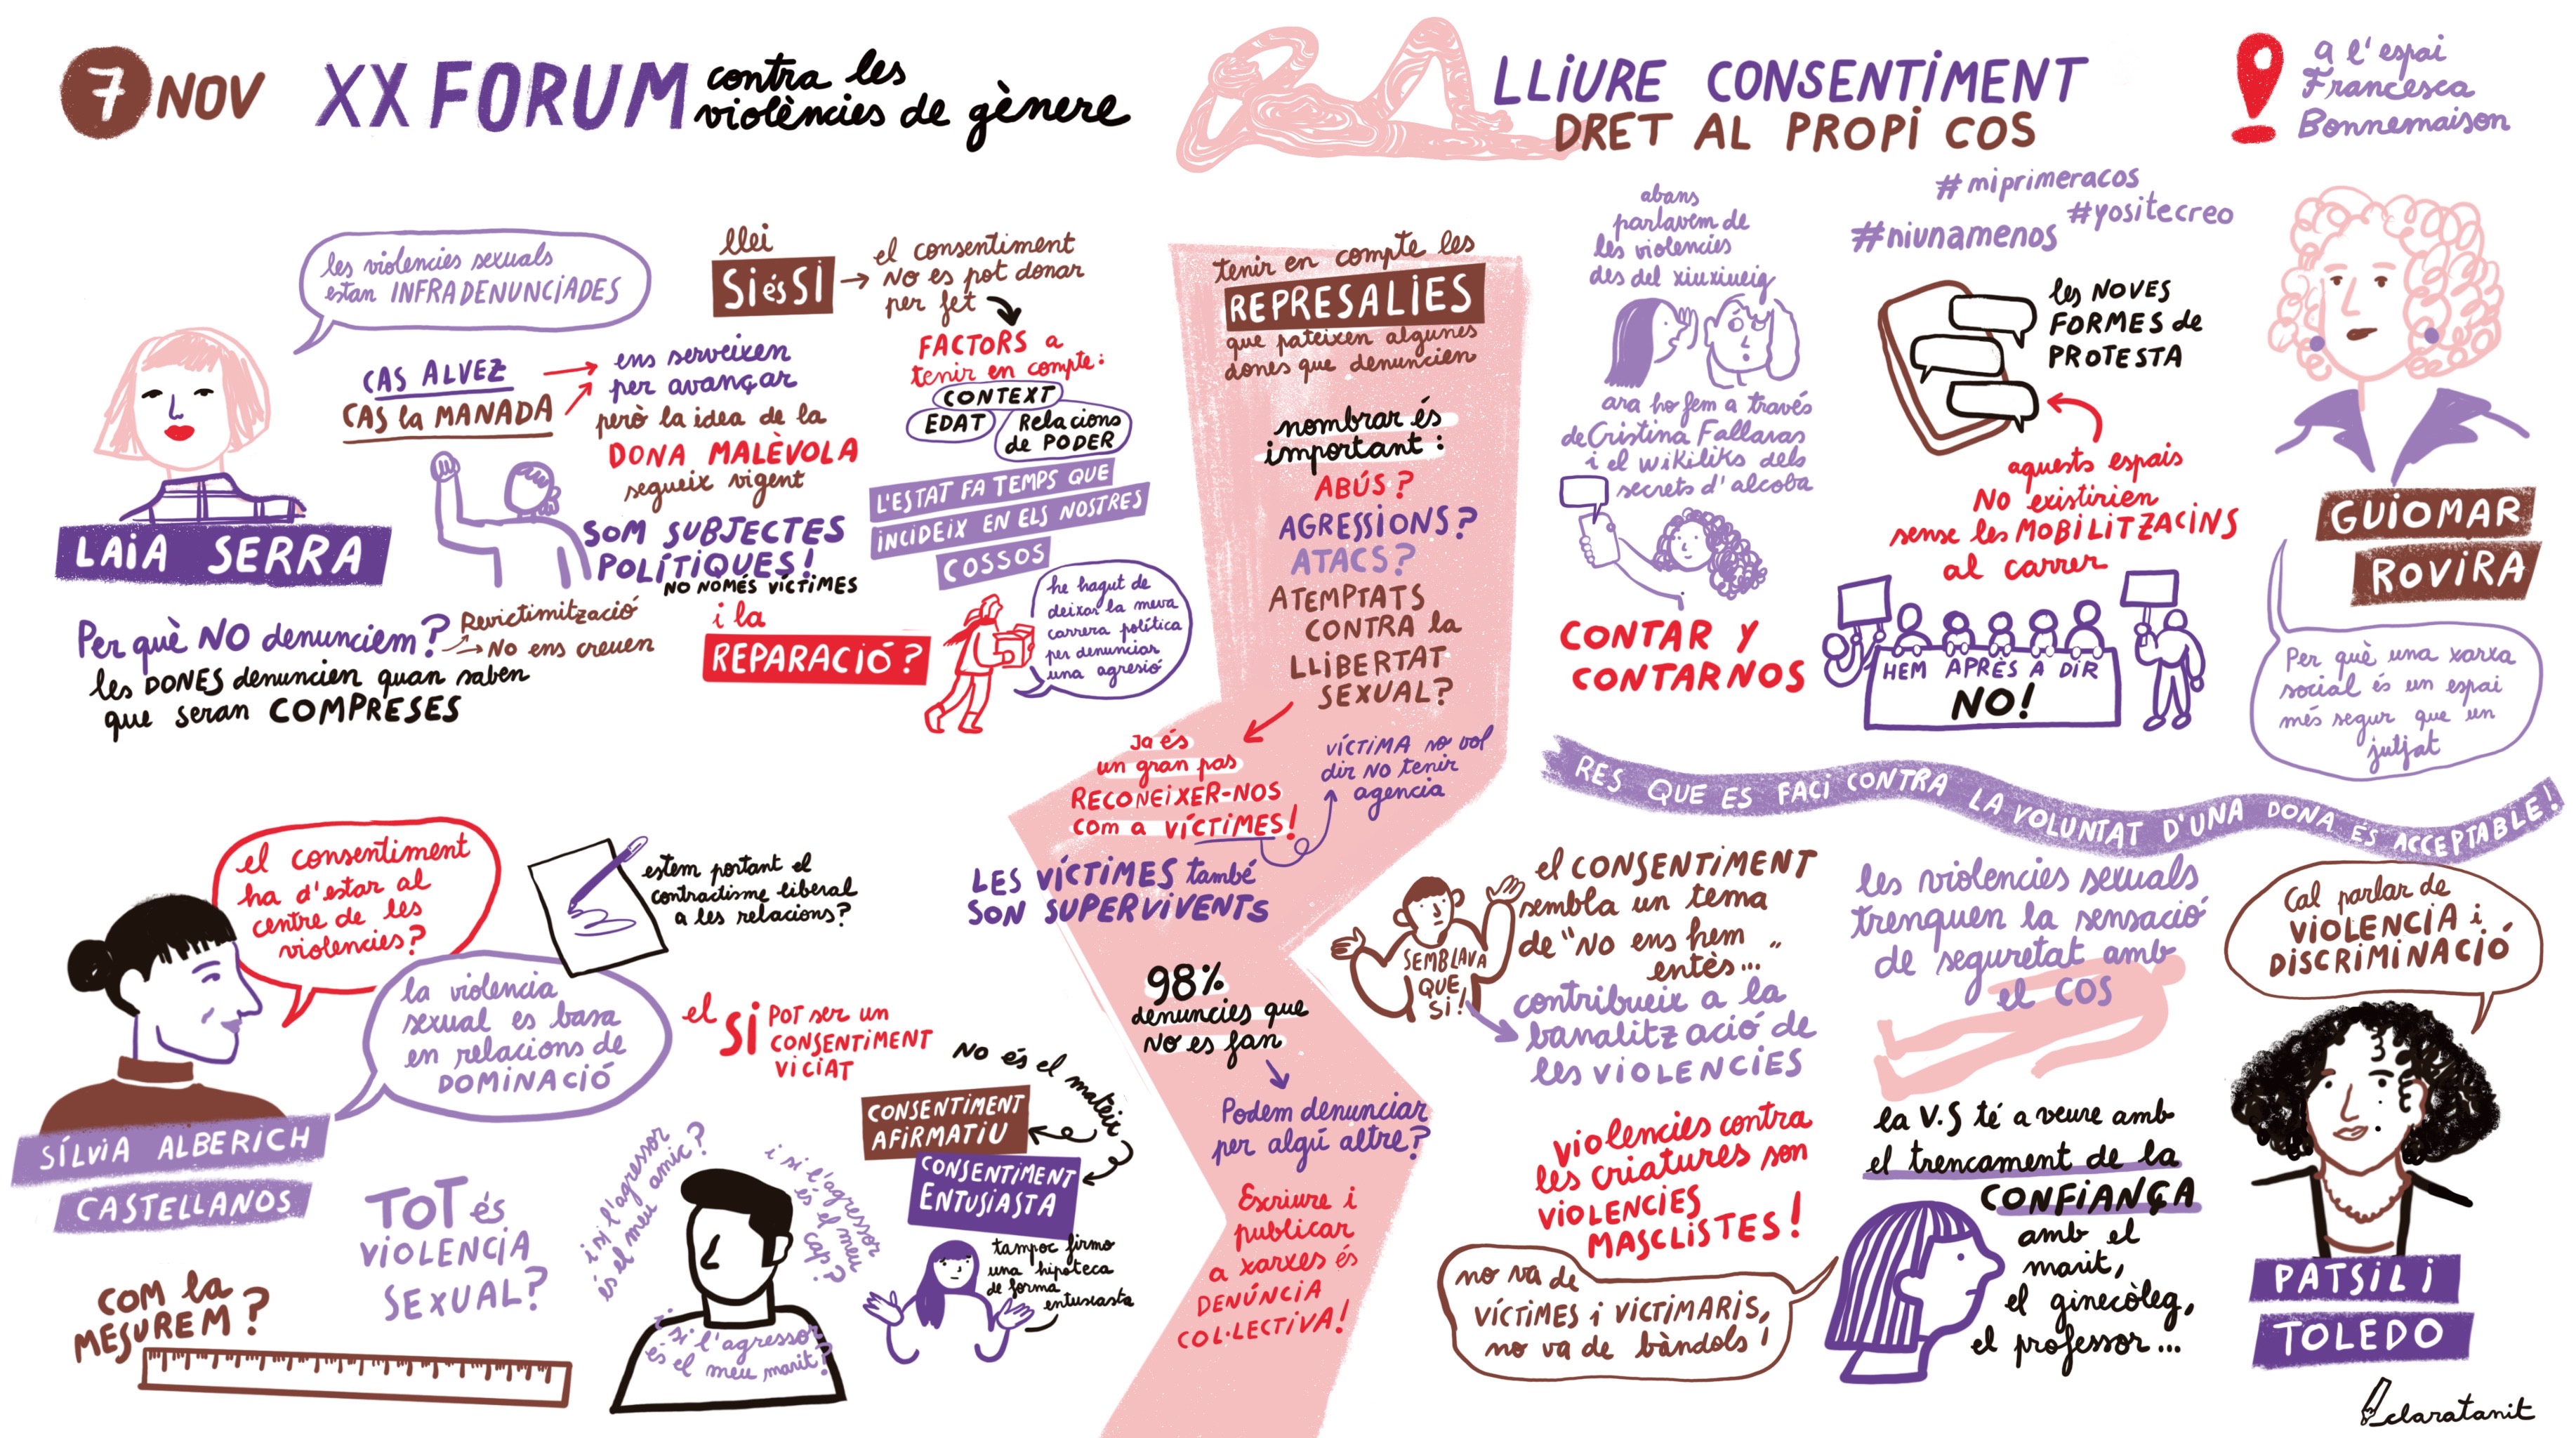 7 NOV
XX FORUM contra les
violències de gènere
LLIURE CONSENTIMENT
DRET AL PROPI COS
a l'espai
Francesca
Bonnemaison
les violencies sexuals
estan INFRADENUNCIADES
LAIA SERRA
CAS ALVEZ
CAS la MANADA
ens serveixen
per avançar
però la idea de la
DONA MALÈVOLA
segueix vigent
SOM SUBJECTES
POLÍTIQUES!
NO NOMÉS VICTIMES
llei
SI és SI
el consentiment
NO es pot donar
per fet
FACTORS a
tenir en compte:
CONTEXT
EDAT
Relacions
de PODER
L'ESTAT FA TEMPS QUE
INCIDEIX EN ELS NOSTRES
COSSOS
Per què NO denunciem?
Revictimització
No ens creuen
les DONES denuncien quan saben
que seran COMPRESES
i la
REPARACIÓ?
he hagut de
deixar la meva
carrera política
per denunciar
una agresió
tenir en compte les
REPRESALIES
que pateixen algunes
dones que denuncien
nombrar és
important:
ABÚS?
AGRESSIONS?
ATACS?
ATEMPTATS
CONTRA la
LLIBERTAT
SEXUAL?
Ja és
un gran pas
RECONEIXER-NOS
com a VÍCTIMES!
VÍCTIMA no vol
dir NO tenir
agencia
LES VÍCTIMES també
SON SUPERVIVENTS
98%
denuncies que
NO es fan
Podem denunciar
per algú altre?
Exriure i
publicar
a xarxes és
DENÚNCIA
COL·LECTIVA!
abans
parlavem de
les violencies
des del xiuxiueig
ara ho fem a través
de Cristina Fallaras
i el wikiliks dels
secrets d'alcoba
CONTAR Y
CONTARNOS
#miprimeracos
#yositecreo
#niunamenos
les NOVES
FORMES de
PROTESTA
aquests espais
NO existirien
sense les MOBILITZACINS
al carrer
HEM APRÈS A DIR
NO!
GUIOMAR
ROVIRA
Per què una xarxa
social és un espai
més segur que un
jutjat
RES QUE ES FACI CONTRA LA VOLUNTAT D'UNA DONA ÉS ACCEPTABLE!
el consentiment
ha d'estar al
centre de les
violencies?
la violencia
sexual es basa
en relacions de
DOMINACIÓ
SÍLVIA ALBERICH
CASTELLANOS
estem portant el
contractisme liberal
a les relacions?
el SI POT ser un
CONSENTIMENT
VICIAT
NO és el mateix
CONSENTIMENT
AFIRMATIU
CONSENTIMENT
ENTUSIASTA
tampoc firmo
una hipoteca
de forma
entusiasta
TOT és
VIOLENCIA
SEXUAL?
COM la
MESUREM?
i si l'agressor
és el meu amic?
i si l'agressor
és el meu
cap?
i si l'agressor
és el meu marit?
SEMBLAVA
QUE
SI!
el CONSENTIMENT
sembla un tema
de "NO ens hem
entès..."
contribueix a la
banalització de
les VIOLENCIES
violencies contra
les criatures son
VIOLENCIES
MASCLISTES!
no va de
VÍCTIMES i VICTIMARIS,
no va de bàndols!
les violencies sexuals
trenquen la sensació
de seguretat amb
el COS
la V.S té a veure amb
el trencament de la
CONFIANÇA
amb el
marit,
el ginecòleg,
el professor...
Cal parlar de
VIOLENCIA i
DISCRIMINACIÓ
PATSILI
TOLEDO
claratanit